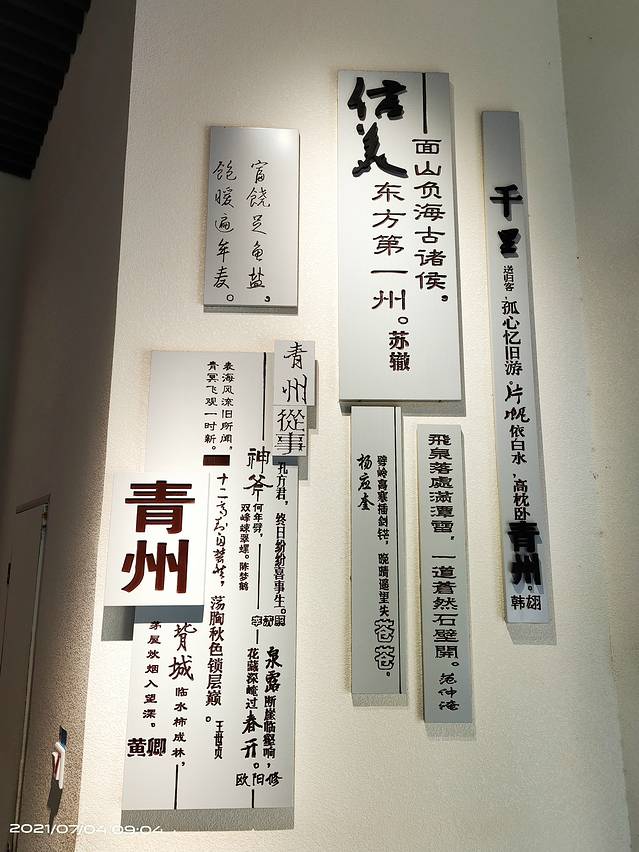 千里送归客，孤心忆旧游，片帆依白水，高枕卧青州。韩翃
面山负海古诸侯，
信美东方第一州。苏辙
富饶足鱼盐，
饱暖遍牟麦。
飛泉落處滿潭雷，一道蒼然石壁開。范仲淹
劈岭高寒插剑铓，晚晴遥望失苍苍。
杨应奎
青州從事孔方君，终日纷纷喜事生。
李清照
神斧何年劈，
双峰竦翠螺。陈梦鹤
表海风流旧所闻，
青冥飞观一时新。
十二
荡胸秋色锁层巅。
王世贞
泉露断崖临壑响，
花藏深崦过春开。
欧阳修
青州
背城临水柿成林，
茅屋炊烟入望深。
黄卿
2021/07/04 09:04